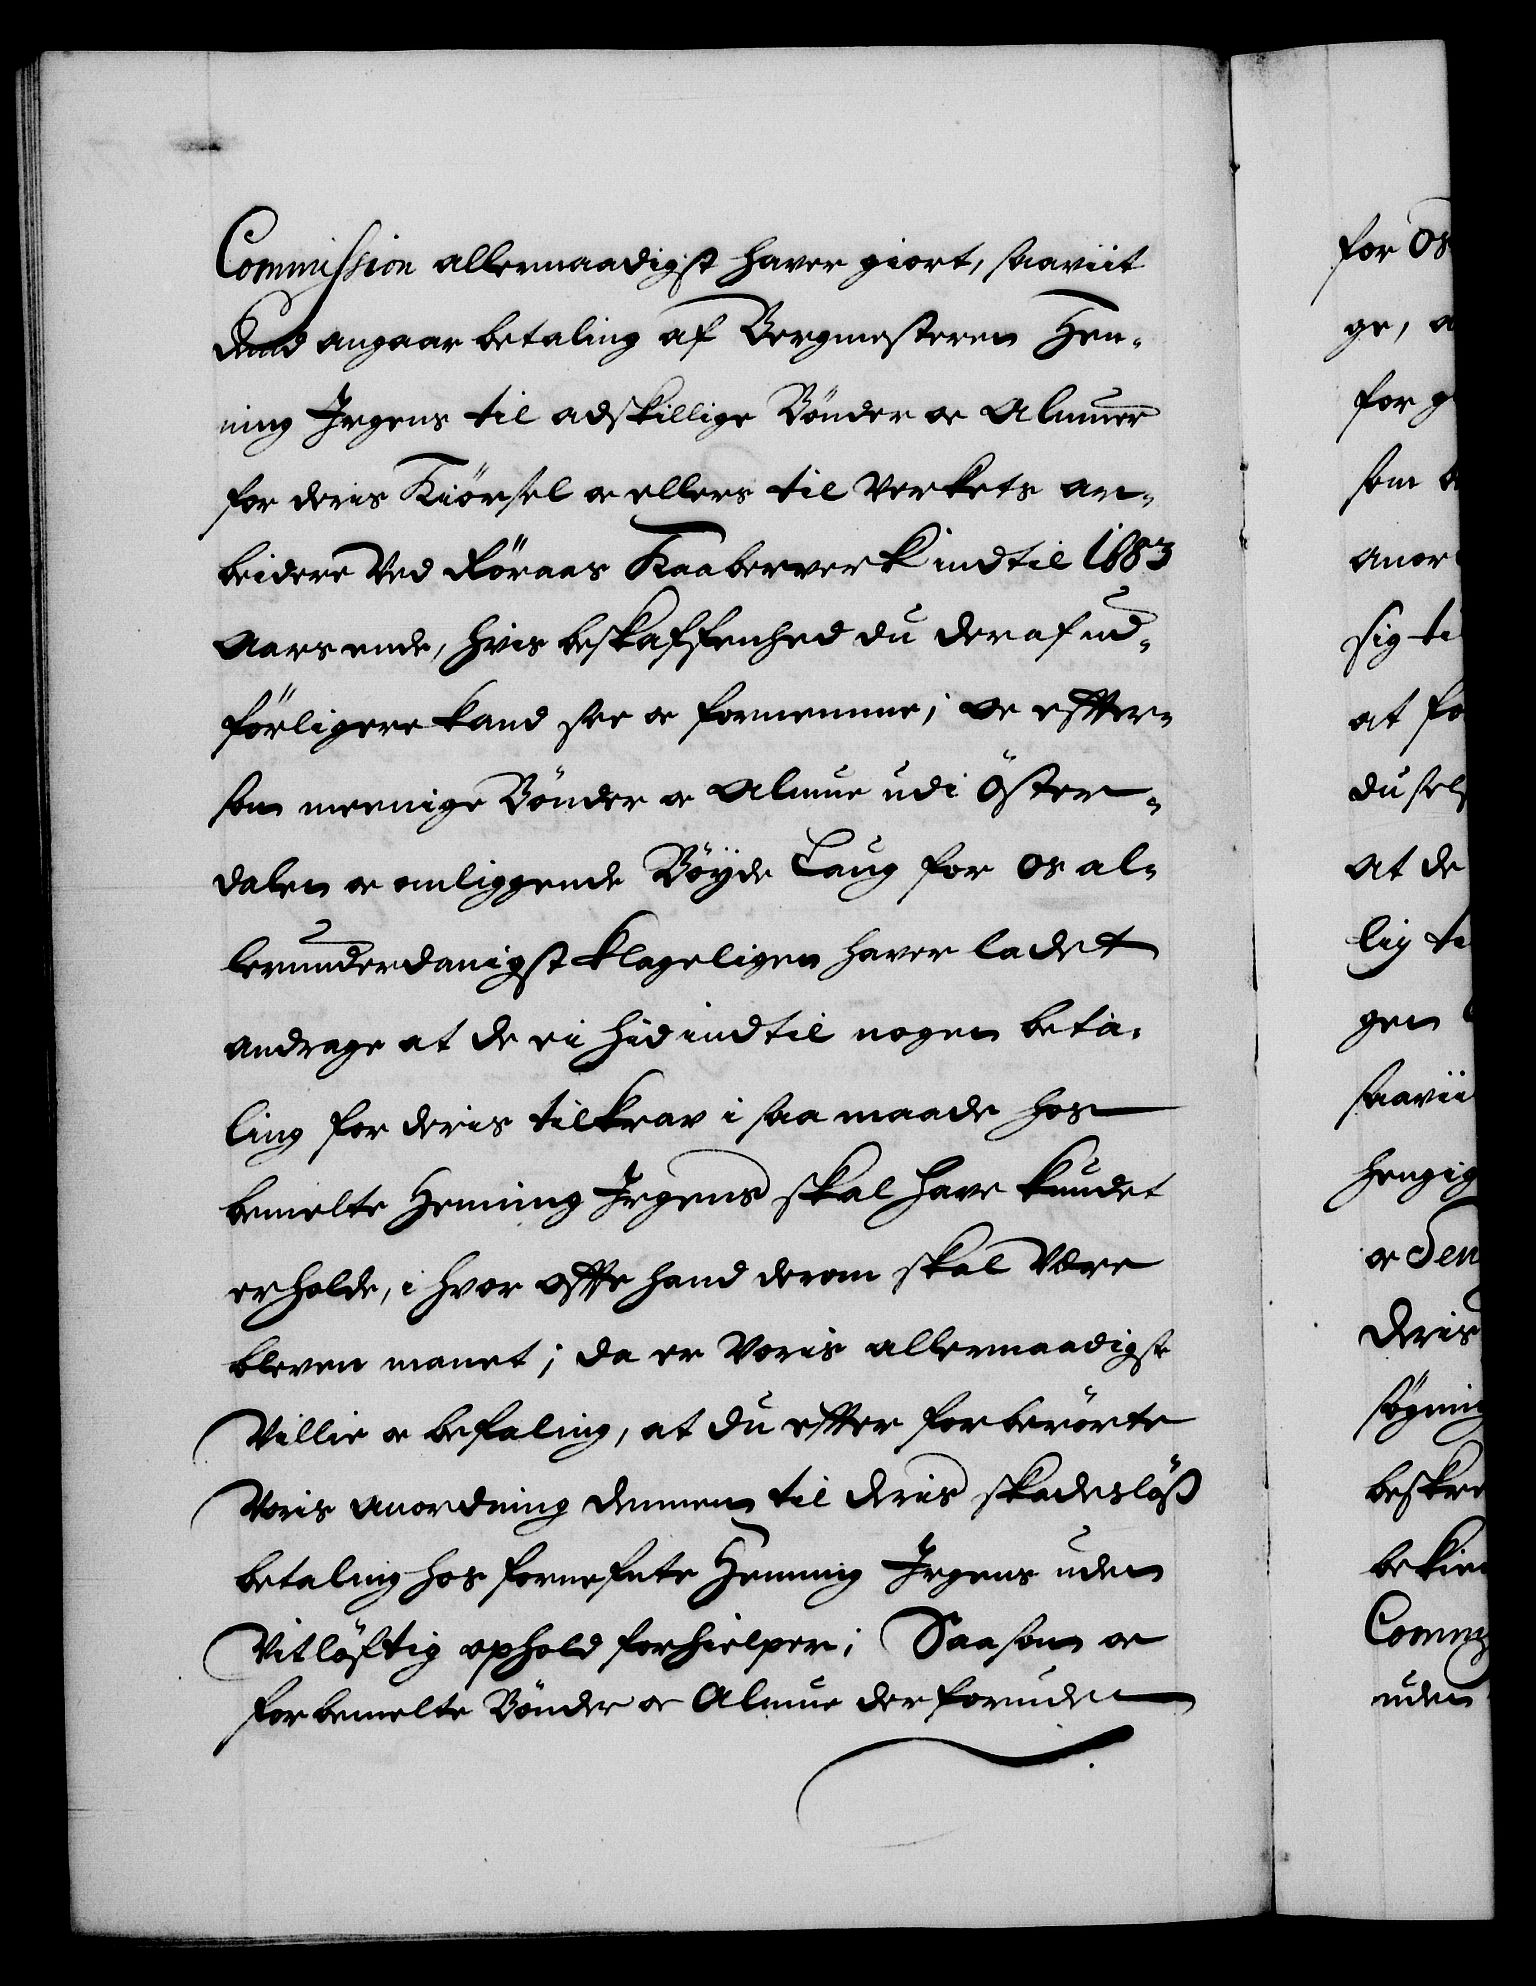 Commission allernaadigst haver giort, saaviit
dend angaar betaling af Bergmesteren Hen-
ning Irgens til adskillige Bönder oc Almuer
for deris Kiörsel oc ellers til Verkets ar-
beidere Ved Röraas Kaaberverk indtil 1683
Aars ende, hvis beskaffenhed du deraf ud-
förligere kand see oc fornemme; oc efter-
som meenige Bönder oc Almue udi Öster-
dalen oc omliggende Böyde Laug for os al-
lerunderdanigst klageligen haver ladet
andrage at de ei hid indtil nogen beta-
ling for deris tilkrav i saa maade hos
bemelte Henning Irgens skal have kundet
erholde, i hvor offte hand derom skal Være
bleven manet; da er Voris allernaadigste
Villie oc befaling, at du effter forberörte
Voris anordning dennem til deris skadeslöß
betaling hos fornefnte Henning Irgens uden
Vitlöftig ophold forhielper; Saasom oc
forbemelte Bönder oc Almue derforuden
for os
ge, a
for g
som
anor
sig ti
at fo
du sel
at de
lig ti
gen
saavii
hengig
oc den
deris
sögning
beskre
bekien
Commi
uden